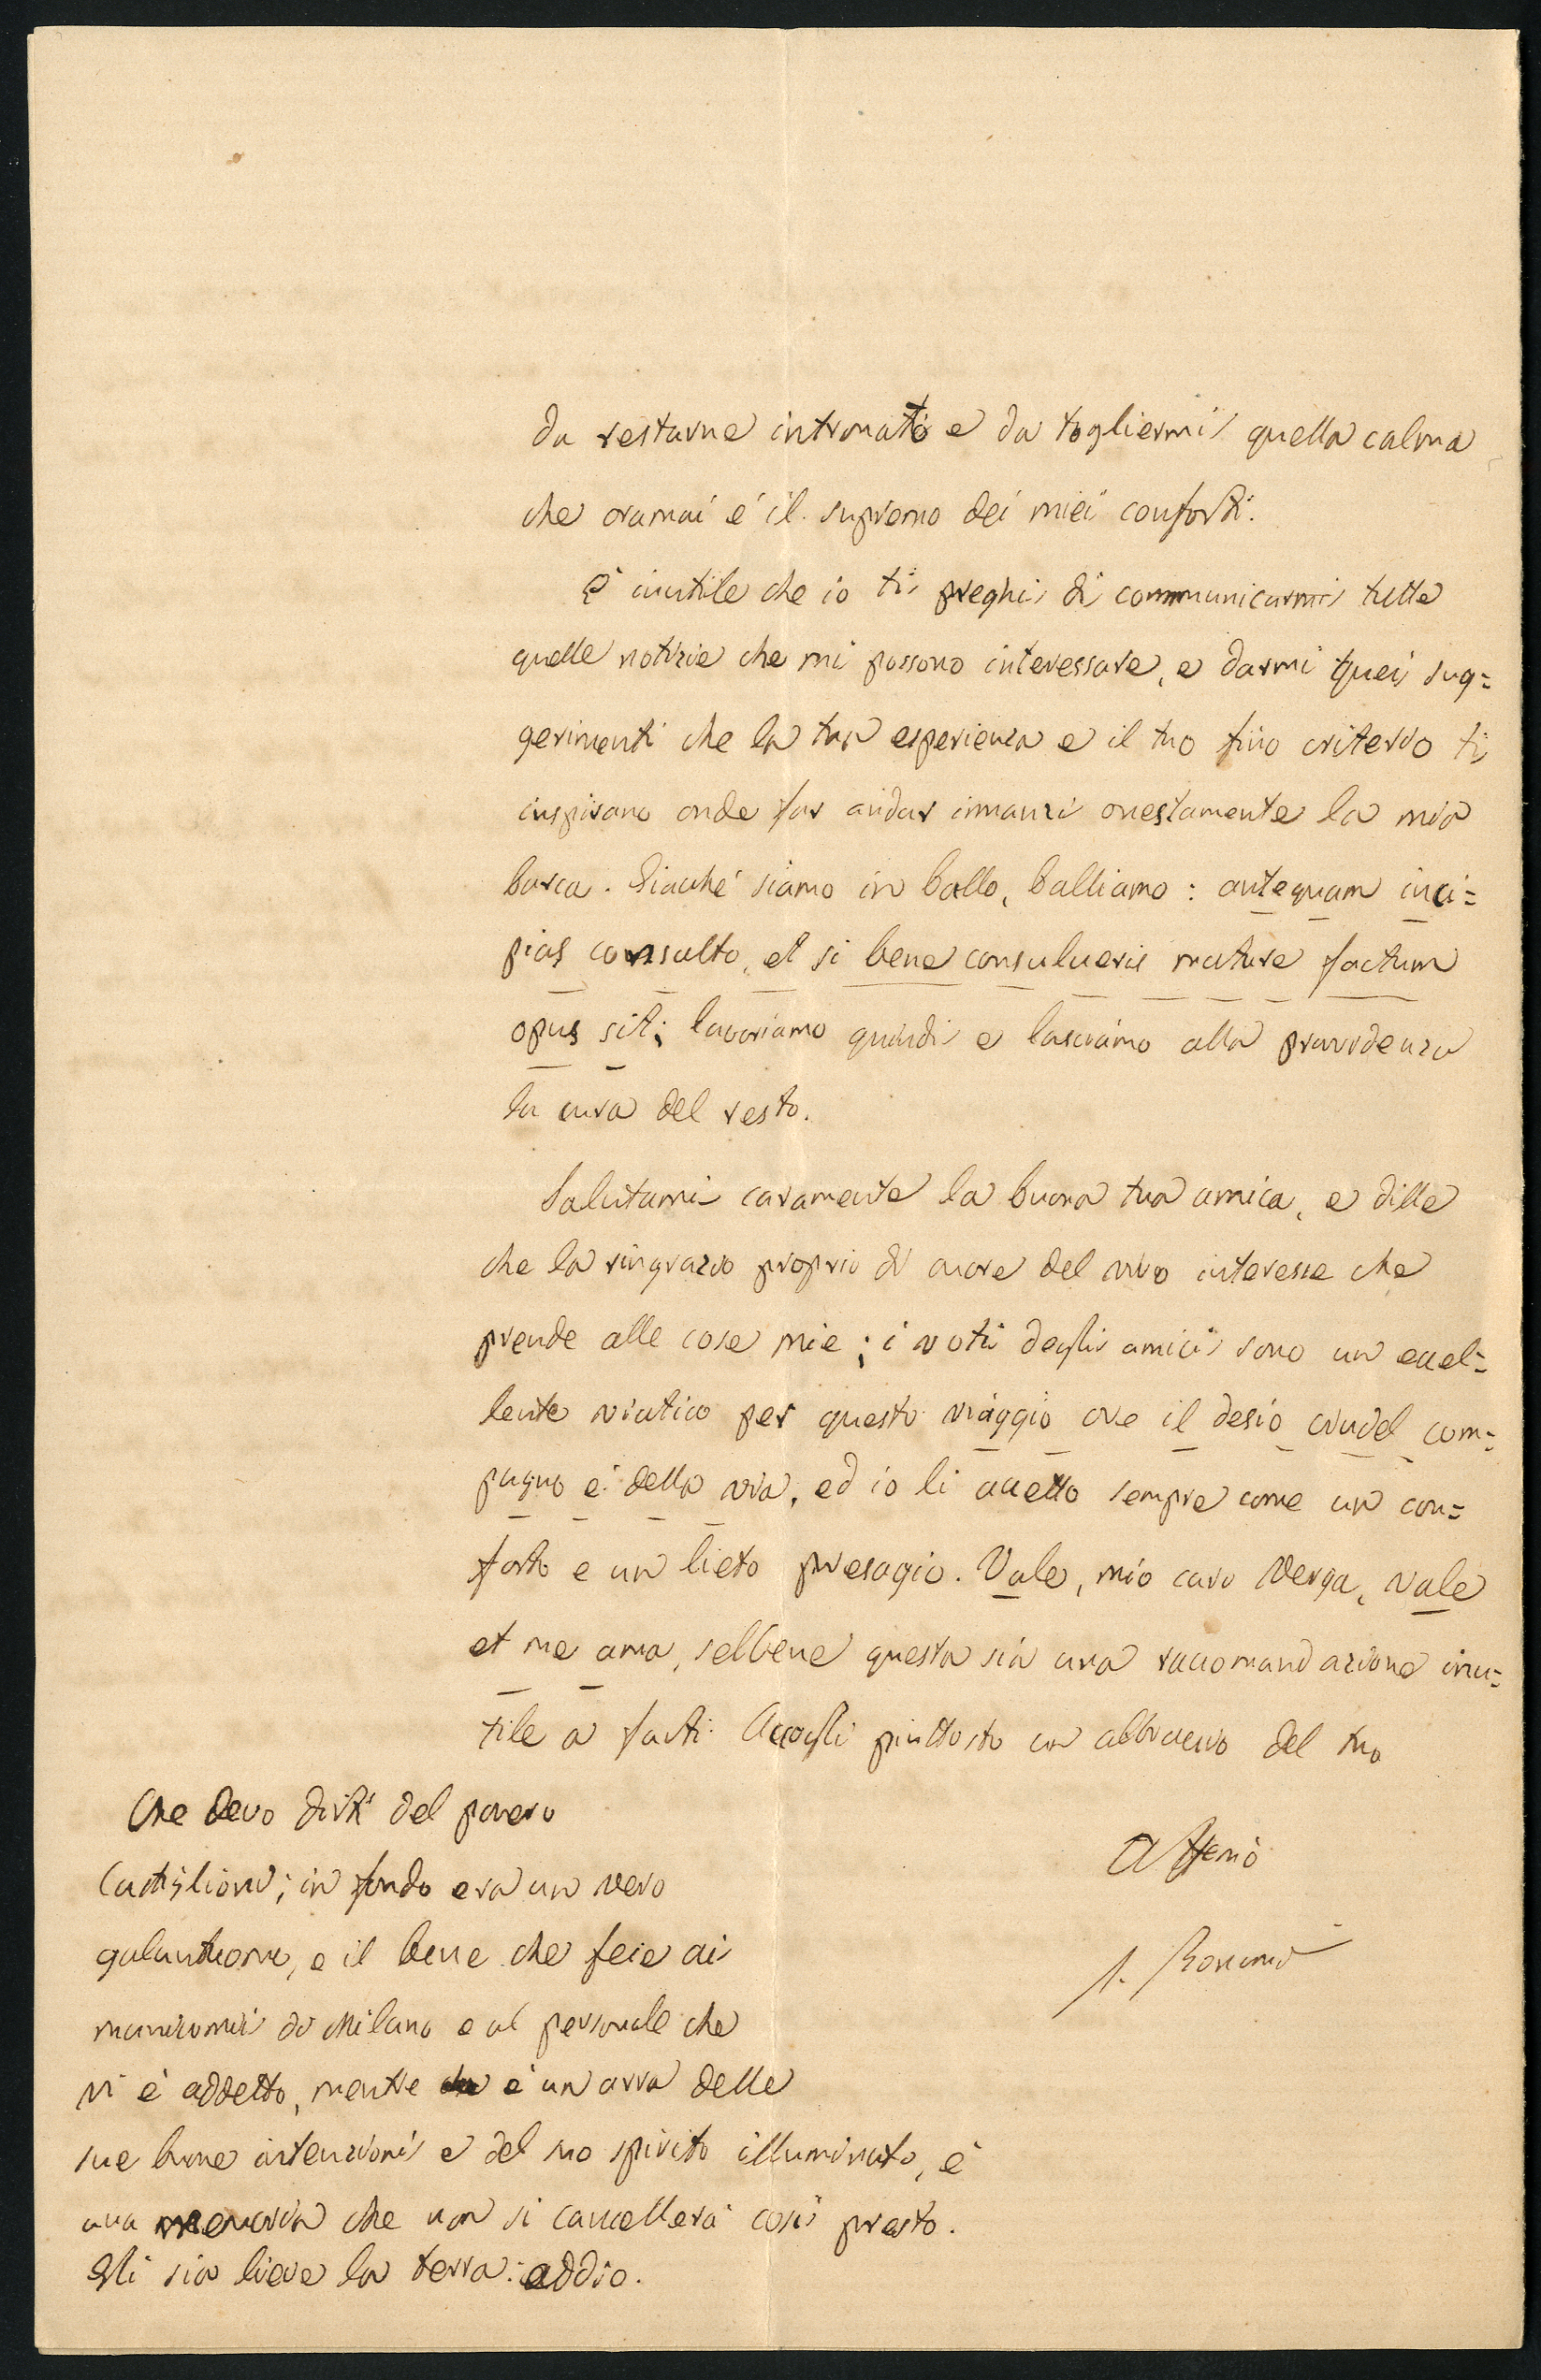 da restarne intronato e da togliermi quella calma
che oramai é il supremo dei miei conforti.
È inutile che io ti preghi di communicarmi tutte
quelle notizie che mi possono interessare, e darmi quei sug=
gerimenti che la tua esperienza e il tuo fino criterio ti
inspirano onde far andar innanzi onestamente la mia
barca. Giacché siamo in ballo, balliamo: antequam inci=
pias consulto, et si bene consulueris mature factum
opus sit; lavoriamo quindi e lasciamo alla provvidenza
la cura del resto.
Salutami caramente la buona tua amica, e dille
che la ringrazio proprio di cuore del vivo interesse che
prende alle cose mie; i voti degli amici sono un eccel=
lente viatico per questo viaggio ove il desio crudel com=
pagno é della via, ed io li accetto sempre come un con=
forto e un lieto presagio. Vale, mio caro Verga, vale
et me ama, sebbene questa sia una raccomandazione inu=
tile a farti. Accogli piuttosto un abbraccio del tuo
Affemo
Che devo dirti del povero
Castiglioni; in fondo era un vero
galantuomo, e il bene che fece ai
manicomii di Milano e al personale che
vi è addetto, mentre è un arra delle
sue buone intenzioni e del suo spirito illuminato, é
una memoria che non si cancellerá cosi presto.
Gli sia lieve la terra: addio.